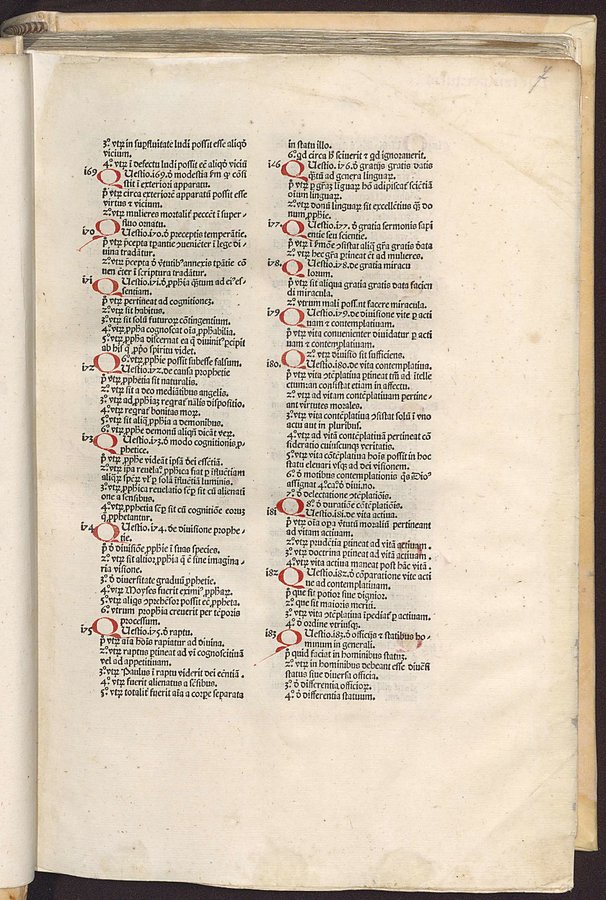 3.º vtꝝ in suꝑfluitate ludi possit esse aliqḋ
vicium.
4.º vtꝝ ī defectu ludi possit eē aliqḋ viciū
169 QUestio.169.ď modestia
stit ī exteriori apparatu.
ꝑ vtꝝ circa exteriorē apparatū possit esse
virtus ⁊ vicium.
2.º vtꝝ mulieres mortalit̉ peccēt ī super-
fluo ornatu.
170 QUestio.170.ď preceptis temperātie.
ꝓueniēter ī lege di-
uina tradātur.
2.º vtꝝ ꝓcepta ď ꝟtutibꝰ annexis tꝑātie cō
uen ēter ī scriptura tradātur.
171 QUestio.171.ď ꝓphīa qꝫtum ad eiꝰ es-
sentiam.
ꝑ vtꝝ pertineat ad cognitionez.
2.º vtꝝ sit habitus.
3.º vtꝝ sit solū futuroꝝ cōtingentium.
4.º vtꝝ ꝓpha cognoscat oīa ꝓphabilia.
5.º vtꝝ ꝓpha discernat ea q̄ diuinitꝰ ꝑcipit
ab his q̄ ꝓpo spiritu videt.
6.º vtꝝ ꝓphie possit subesse falsum.
172 QUestio.172.de causa prophetie
ꝑ vtꝝ ꝓphetia sit naturalis.
2.º vtꝝ sit a deo mediātibus angelis.
3.º vtꝝ ad ꝓphiaꝫ reqrat̉ nālis dispositio.
4.º vtꝝ reqrat̉ bonitas moꝝ.
5.º vtꝝ sit aliq̄ ꝓphia a demonibus.
6.º vtꝝ ꝓphe demonū aliqḋ dicāt veꝝ.
173 QUestio.173.ď modo cognitionis ꝓ-
phetice.
ꝑ vtꝝ ꝓphe videāt ipsā dei essētiā.
2.º vtꝝ ipa reuelaº ꝓphica fiat ꝑ ifluētiam
aliqꝝ spēꝝ vl̉ ꝑ solā ifluētiā luminis.
3.º vtꝝ ꝓphica reuelatio sēꝑ sit cū alienati
one a sensibus.
4.º vtꝝ ꝓphetia sēꝑ sit cū cognitiōe eoꝝ
q̄ ꝓphetantur.
174 QUestio.174.de diuisione prophe-
tie.
ꝑ ď diuisiōe ꝓphie ī suas species.
2.º vtꝝ sit altior ꝓphia q̄ ē sine imagina-
ria visione.
3.º ď diuersitate graduū ꝓphetie.
4.º vtꝝ Moyses fuerit eximiꝰ ꝓphaꝝ.
5.º vtꝝ aliqs ꝓprehēsor possit eē ꝓpheta.
6.º vtrum prophia creuerit per tēporis
processum.
175 QUestio.175.ď raptu.
ꝑ vtꝝ aīa hoīs rapiatur ad diuina.
2.º vtꝝ raptus ꝑtineat ad vī cognoscitiuā
vel ad appetitiuam.
3.º vtꝝ Paulus ī raptu viderit dei ecn̄tiā.
4.º vtꝝ fuerit alienatus a sēsibus.
5.º vtꝝ totalit̉ fuerit aīa a corꝑe separata
in statu illo.
6.º qd circa h̄ sciuerit ⁊ qd ignorauerit.
176 QUestio.176.ď gratijs gratis datis
q̄tū ad genera linguaꝝ.
ꝑ vtꝝ ꝑ gr̄az līguaꝝ hō adipiscat̉ sciētiā
oīum linguaꝝ.
2.º vtꝝ donū linguaꝝ sit excellētius q̄ do
num ꝓphie.
177 QUestio.177.ď gratia sermonis sapi
entie seu scientie.
ꝑ vtꝝ ī ẜmōe ꝓsistat aliq̄ gr̄a gratis data
2.º vtꝝ hec gr̄a ꝑtineat et̄ ad mulieres.
178 QUestio.178.de gratia miracu
lorum.
ꝑ vtꝝ sit aliqua gratia gratis data facien
di miracula.
2.º vtrum mali poss̄nt facere miracula.
179 QUestio.179.de diuisione vite ꝑ acti
uam ⁊ contemplatiuam.
ꝑ vtꝝ vita conuenienter diuidatur ꝑ acti
uam ⁊ contemplatiuam.
2.º vtꝝ diuisio sit sufficiens.
180. QUestio.180.de vita contemplatiua.
ꝑ vtꝝ vita ꝯtēplatiua ꝑtineat tm̄ ad ītelle
ctum:an consistat etiam in affectu.
2.º vtꝝ ad vitam contēplatiuam pertine-
ant virtutes morales.
3.º vtꝝ vita contēplatiua ꝯsistat solū ī vno
actu aut in pluribus.
4.º vtꝝ ad vitā contēplatiuā pertineat cō
sideratio cuiuscunqꝫ veritatis.
5.º vtꝝ vita cōtēplatiua hoīs possit in hoc
statu eleuari vsqꝫ ad dei visionem.
6.º ď motibus contemplationis q̄s Dioꝰ
assignat 4.º ca.º ď diui.no.
7.º ď delectatione ꝯtēplatiōis.
8.º ď duratiōe cōtēplatiōis.
181 QUestio.181.de vita actiua.
ꝑ vtꝝ oīa oꝑa ꝟtutū moraliū pertineant
ad vitam actiuam.
2.º vtꝝ prudētia ꝑtineat ad vitā actiuam.
3.º vtꝝ doctrina ꝑtineat ad vitā actiuam.
4.º vtꝝ vita actiua maneat post hāc vitā.
182 QUestio.182.ď cōparatione vite acti
ue ad contemplatiuam.
ꝑ que sit potior siue dignior.
2.º que sit maioris meriti.
3.º vtꝝ vita ꝯtēplatiua īpediat̉ ꝑ actiuam.
4.º ď ordine vtriusqꝫ.
183 QUestio.183.ď officijs ⁊ statibus ho-
minum in generali.
ꝑ quid faciat in hominibus statuꝫ.
2.º vtꝝ in hominibus debeant esse diuersi
status siue diuersa officia.
3.º ď differentia officioꝝ.
4.º ď differentia statuum.